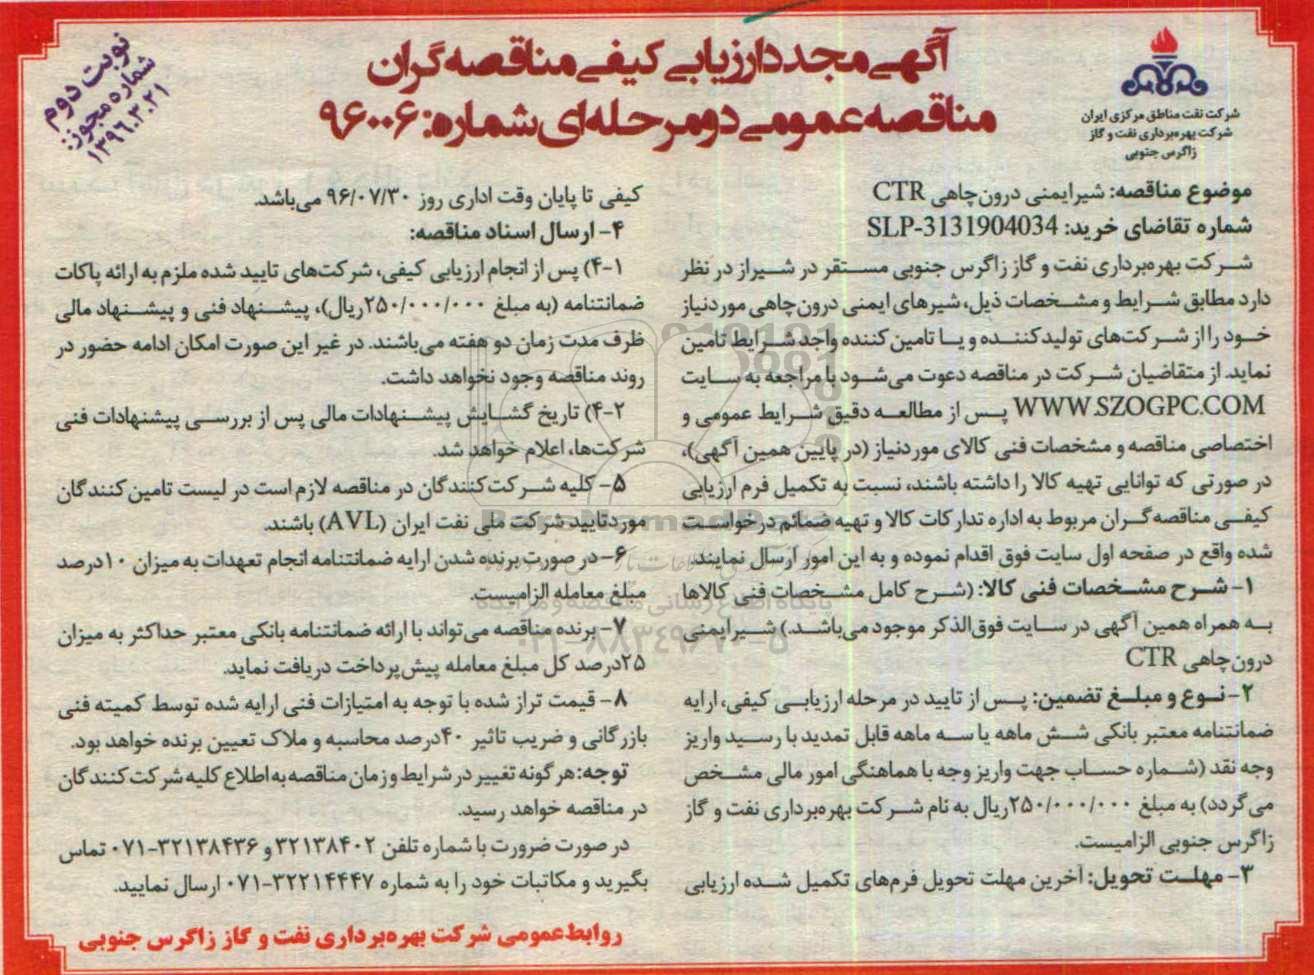 نوبت دوم
شماره مجوز:
۱۳۹۶.۳.۲۱
آگهی مجدد ارزیابی کیفی مناقصه‌گران
مناقصه عمومی دومرحله‌ای شماره: ۹۶۰۰۶
شرکت نفت مناطق مرکزی ایران
شرکت بهره‌برداری نفت و گاز
زاگرس جنوبی
موضوع مناقصه: شیرایمنی درون‌چاهی CTR
شماره تقاضای خرید: SLP-3131904034
شرکت بهره‌برداری نفت و گاز زاگرس جنوبی مستقر در شیراز در نظر
دارد مطابق شرایط و مشخصات ذیل، شیرهای ایمنی درون‌چاهی موردنیاز
خود را از شرکت‌های تولیدکننده و یا تامین کننده واجد شرایط تامین
نماید. از متقاضیان شرکت در مناقصه دعوت می‌شود با مراجعه به سایت
WWW.SZOGPC.COM پس از مطالعه دقیق شرایط عمومی و
اختصاصی مناقصه و مشخصات فنی کالای موردنیاز (در پایین همین آگهی)،
در صورتی که توانایی تهیه کالا را داشته باشند، نسبت به تکمیل فرم ارزیابی
کیفی مناقصه‌گران مربوط به اداره تدارکات کالا و تهیه ضمائم درخواست
شده واقع در صفحه اول سایت فوق اقدام نموده و به این امور ارسال نمایند.
۱- شرح مشخصات فنی کالا: (شرح کامل مشخصات فنی کالاها
به همراه همین آگهی در سایت فوق‌الذکر موجود می‌باشد.) شیرایمنی
درون‌چاهی CTR
۲- نوع و مبلغ تضمین: پس از تایید در مرحله ارزیابی کیفی، ارایه
ضمانتنامه معتبر بانکی شش ماهه یا سه ماهه قابل تمدید با رسید واریز
وجه نقد (شماره حساب جهت واریز وجه با هماهنگی امور مالی مشخص
می‌گردد) به مبلغ ۲۵۰/۰۰۰/۰۰۰ریال به نام شرکت بهره‌برداری نفت و گاز
زاگرس جنوبی الزامیست.
۳- مهلت تحویل: آخرین مهلت تحویل فرم‌های تکمیل شده ارزیابی
کیفی تا پایان وقت اداری روز ۹۶/۰۷/۳۰ می‌باشد.
۴- ارسال اسناد مناقصه:
۴-۱) پس از انجام ارزیابی کیفی، شرکت‌های تایید شده ملزم به ارائه پاکات
ضمانتنامه (به مبلغ ۲۵۰/۰۰۰/۰۰۰ریال)، پیشنهاد فنی و پیشنهاد مالی
ظرف مدت زمان دو هفته می‌باشند. در غیر این صورت امکان ادامه حضور در
روند مناقصه وجود نخواهد داشت.
۴-۲) تاریخ گشایش پیشنهادات مالی پس از بررسی پیشنهادات فنی
شرکت‌ها، اعلام خواهد شد.
۵- کلیه شرکت‌کنندگان در مناقصه لازم است در لیست تامین کنندگان
موردتایید شرکت ملی نفت ایران (AVL) باشند.
۶- در صورت برنده شدن ارایه ضمانتنامه انجام تعهدات به میزان ۱۰درصد
مبلغ معامله الزامیست.
۷- برنده مناقصه می‌تواند با ارائه ضمانتنامه بانکی معتبر حداکثر به میزان
۲۵درصد کل مبلغ معامله پیش‌پرداخت دریافت نماید.
۸- قیمت تراز شده با توجه به امتیازات فنی ارایه شده توسط کمیته فنی
بازرگانی و ضریب تاثیر ۴۰درصد محاسبه و ملاک تعیین برنده خواهد بود.
توجه: هرگونه تغییر در شرایط و زمان مناقصه به اطلاع کلیه شرکت کنندگان
در مناقصه خواهد رسید.
در صورت ضرورت با شماره تلفن ۳۲۱۳۸۴۰۲ و ۳۲۱۳۸۴۳۶-۰۷۱ تماس
بگیرید و مکاتبات خود را به شماره ۳۲۲۱۴۴۴۷-۰۷۱ ارسال نمایید.
روابط‌عمومی شرکت بهره‌برداری نفت و گاز زاگرس جنوبی